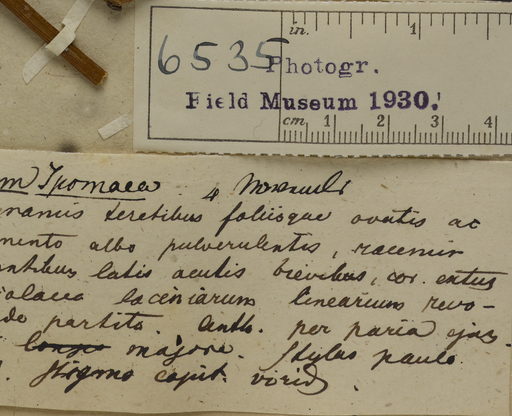 6535
in. 1
Photogr.
Field Museum 1930.
cm 1 2 3 4
m Ipomaea 4
ramis teretibus foliisque ovatis ac
mento albo pulverulentis, racemis
ntibus latis acutis brevibus, cor. extus
iolacea laciniarum linearium revo-
de partito. Anth. per paria ejus.
longo majore. Stylus paulo
Stigma capit. virid.